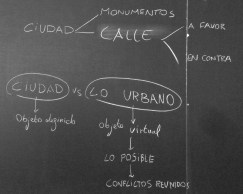 MONUMENTOS
CIUDAD CALLE A FAVOR
EN CONTRA
CIUDAD VS LO URBANO
Objeto Objeto virtual
LO POSIBLE
CONFLICTOS REUNIDOS